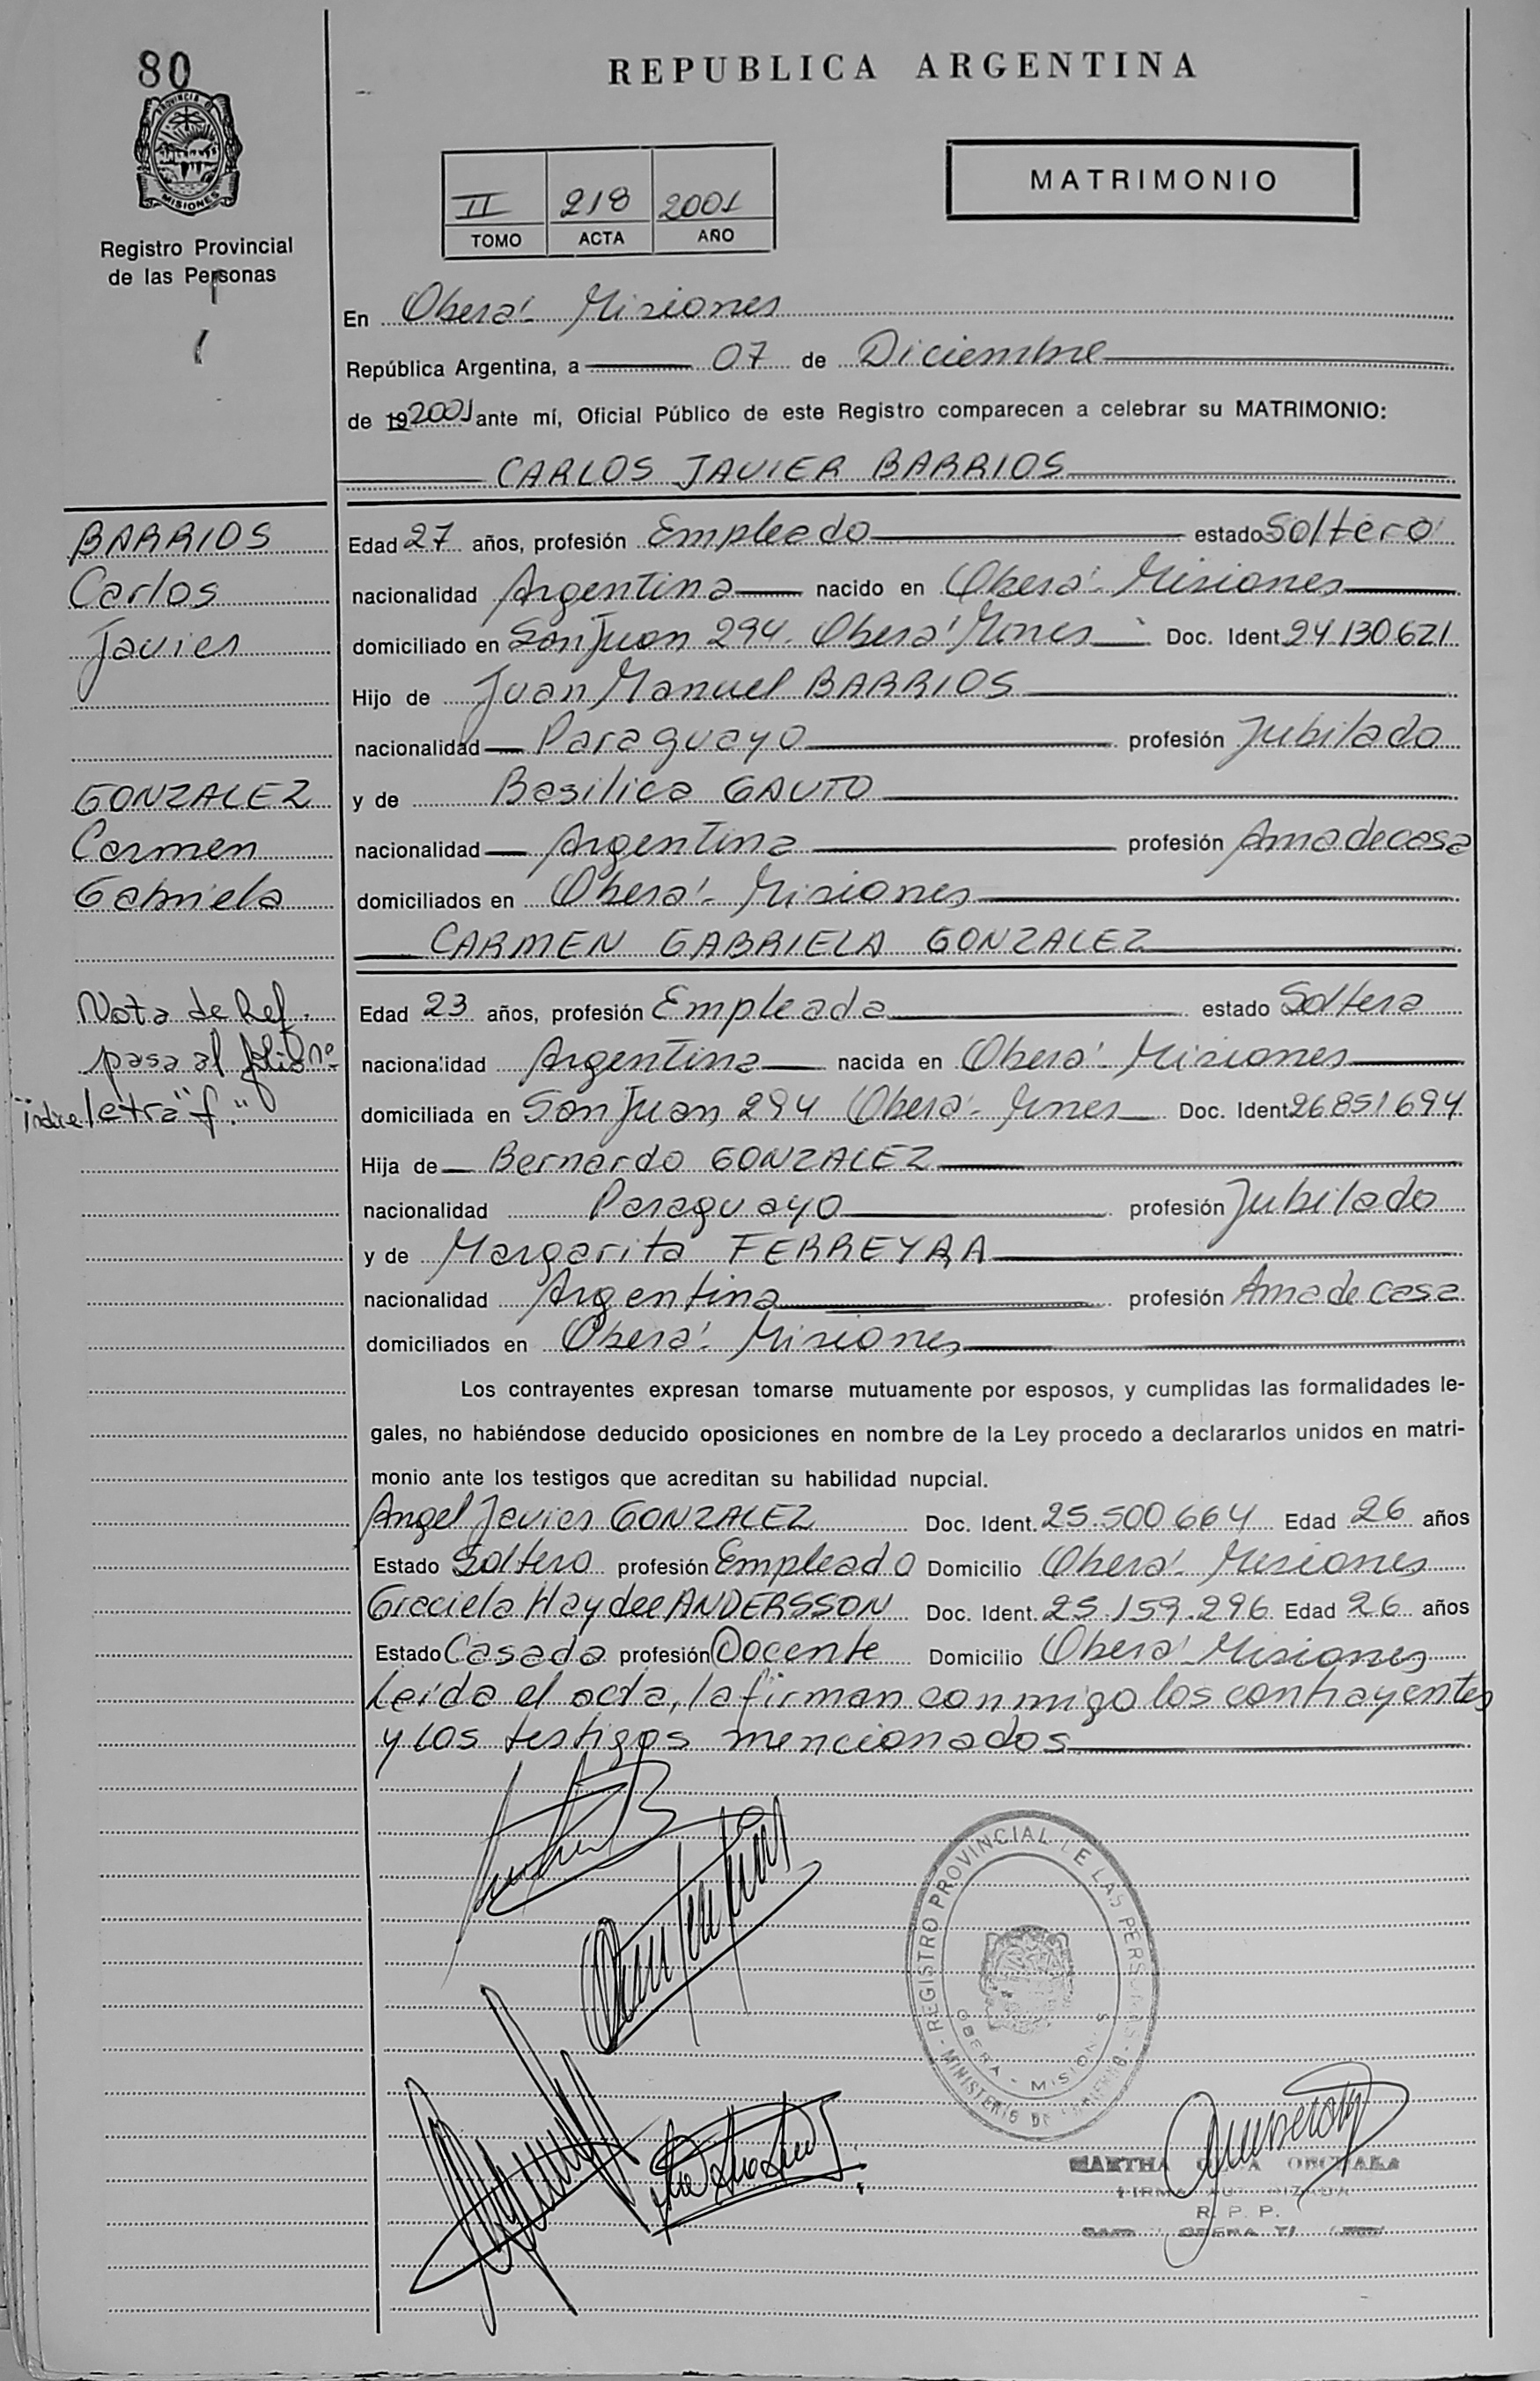 80
REPUBLICA ARGENTINA
PROVINCIA D
MISIONES
Registro Provincial
de las Personas
MATRIMONIO
II 218 2001
TOMO ACTA AÑO
En Oberá - Misiones
República Argentina, a 07 de Diciembre
de 192001 ante mí, Oficial Público de este Registro comparecen a celebrar su MATRIMONIO:
CARLOS JAVIER BARRIOS
BARRIOS
Carlos
Javier
GONZALEZ
Carmen
Gabriela
Nota de Ref.
pasa al folio nº
indice letra "f"
Edad 27 años, profesión Empleado estado Soltero
nacionalidad Argentina nacido en Oberá - Misiones
domiciliado en San Juan 294 - Oberá Mnes Doc. Ident 24130621
Hijo de Juan Manuel BARRIOS
nacionalidad Paraguayo profesión Jubilado
y de Basilica GAUTO
nacionalidad Argentina profesión Ama de casa
domiciliados en Oberá - Misiones
CARMEN GABRIELA GONZALEZ
Edad 23 años, profesión Empleada estado Soltera
nacionalidad Argentina nacida en Oberá - Misiones
domiciliada en San Juan 294 Oberá - Mnes Doc. Ident. 26851694
Hija de Bernardo GONZALEZ
nacionalidad Paraguayo profesión Jubilado
y de Margarita FERREYRA
nacionalidad Argentina profesión Ama de casa
domiciliados en Oberá - Misiones
Los contrayentes expresan tomarse mutuamente por esposos, y cumplidas las formalidades le-
gales, no habiéndose deducido oposiciones en nombre de la Ley procedo a declararlos unidos en matri-
monio ante los testigos que acreditan su habilidad nupcial.
Angel Javier GONZALEZ Doc. Ident. 25.500.664 Edad 26 años
Estado Soltero profesión Empleado Domicilio Oberá - Misiones
Graciela Haydee ANDERSSON Doc. Ident. 25.159.296 Edad 26 años
Estado Casada profesión Docente Domicilio Oberá - Misiones
Leída el acta, la firman conmigo los contrayentes
y los testigos mencionados
REGISTRO PROVINCIAL DE LAS PERSONAS
OBERA - MISIONES
MINISTERIO DE GOBIERNO
MARTHA
FIRMA AUTORIZADA
R. P. P.
OBERA